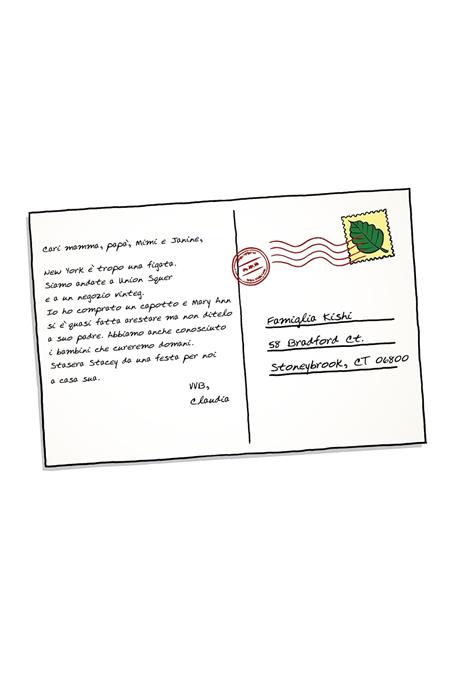 Cari mamma, papà, Mimi e Janine,
New York è tropo una figata.
Siamo andate a Union Squer
e a un negozio vinteg.
Io ho comprato un capotto e Mary Ann
si è quasi fatta arestare ma non ditelo
a suo padre. Abbiamo anche conosciuto
i bambini che cureremo domani.
Stasera Stacey da una festa per noi
a casa sua.
WB,
Claudia
Famiglia Kishi
58 Bradford Ct.
Stoneybrook, CT 06800